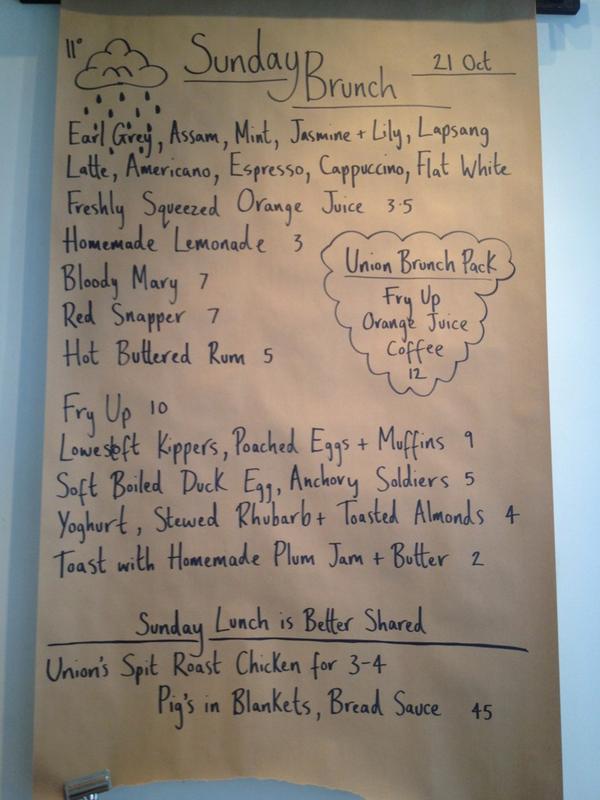 11°
Sunday Brunch
21 Oct
Earl Grey, Assam, Mint, Jasmine + Lily, Lapsang
Latte, Americano, Espresso, Cappuccino, Flat White
Freshly Squeezed Orange Juice 3.5
Homemade Lemonade 3
Bloody Mary 7
Red Snapper 7
Hot Buttered Rum 5
Union Brunch Pack
Fry Up
Orange Juice
Coffee
12
Fry Up 10
Lowestoft Kippers, Poached Eggs + Muffins 9
Soft Boiled Duck Egg, Anchovy Soldiers 5
Yoghurt, Stewed Rhubarb + Toasted Almonds 4
Toast with Homemade Plum Jam + Butter 2
Sunday Lunch is Better Shared
Union's Spit Roast Chicken for 3-4
Pig's in Blankets, Bread Sauce 45